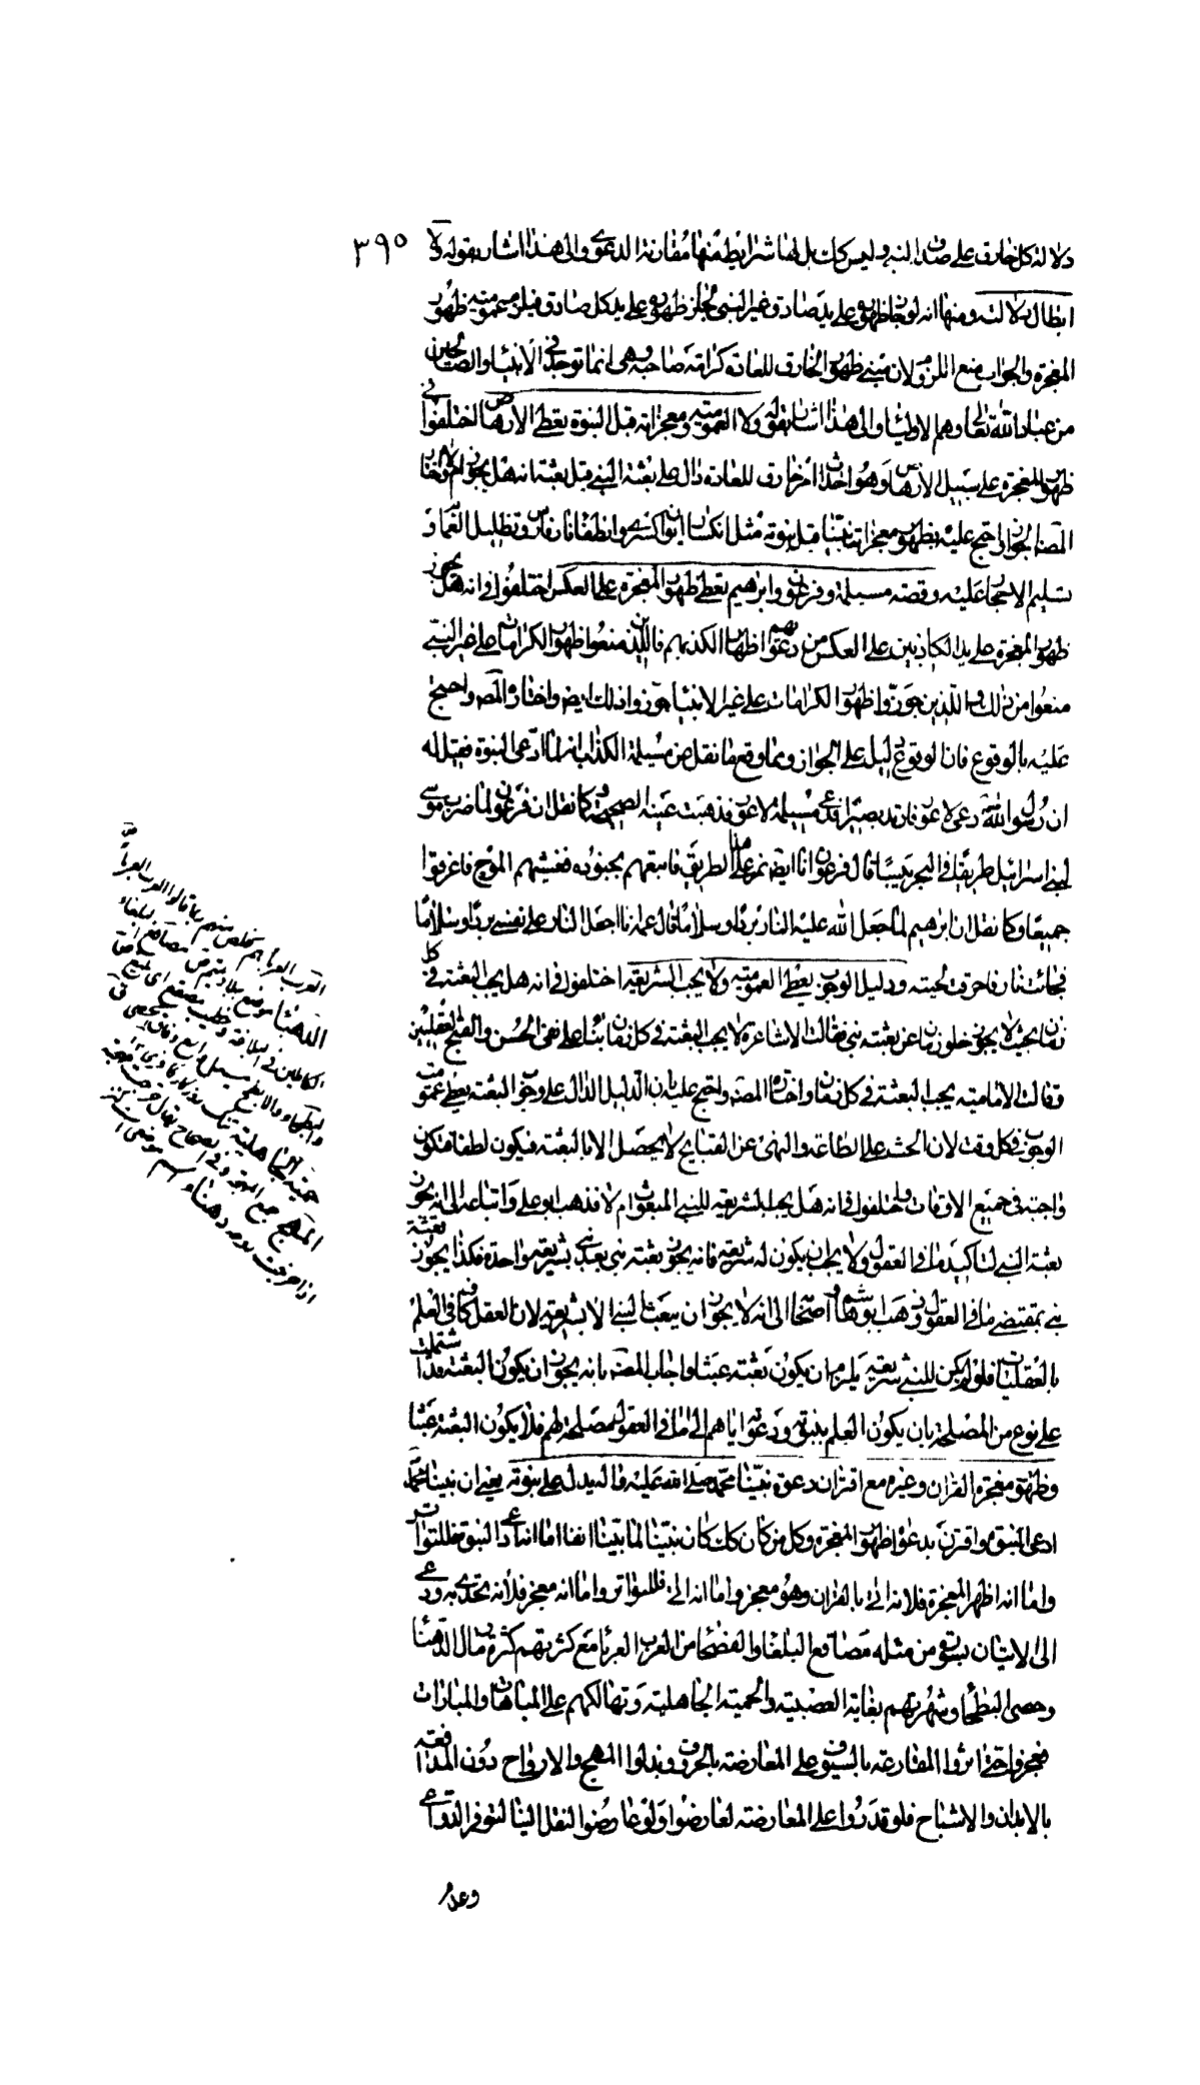 ٣٩٥
دلالة كل خارق على صدق النبي وليس كك بل لها شرايط منها مقارنة الدعوى والى هذا اشار بقوله ولا
ابطال دلالته ومنها انه لو جاز ظهوره على يد صادق غير النبي لجاز ظهوره على يد كل صادق فيلزم عموميته ظهور
المعجزة والجواب منع اللزوم لان مبنى ظهور الخارق للعادة كرامة صاحبه وهى انما توجد فى الانبياء والصالحين
من عباد الله تعالى وهم الاولياء والى هذا اشار بقوله ولا العمومية ومعجزاته قبل النبوة يعطى الارهاص اختلفوا فى
ظهور المعجزة على سبيل الارهاص وهو احداث امر خارق للعادة دال على بعثة النبي قبل بعثته انه هل يجوز ام لا واختار
المصنه الجواز واحتج عليه بظهور معجزات نبينا قبل نبوته مثل انكسار ايوان كسرى وانطفاء نار فارس وتظليل الغمام و
تسليم الاحجار عليه وقصة مسيلمة وفرعون وابرهيم يعطى ظهور المعجزة على العكس اختلفوا فى انه هل يجوز
ظهور المعجزة على يد الكاذبين على العكس من دعويهم اظهارا لكذبهم فالذين منعوا ظهور الكرامات على غير النبي
منعوا من ذلك والذين جوزوا ظهور الكرامات على غير الانبياء جوزوا ذلك ايضه واختاره المصه واحتج
عليه بالوقوع فان الوقوع دليل على الجواز ومما وقع ما نقل من مسيلمة الكذاب انه لما ادعى النبوة فقيل له
ان رسول الله دعى لاعور فارتد بصيرا فدعى مسيلمة لاعور فذهبت عينه الصحيحة وكما نقل ان فرعون لما ضرب موسى
لبنى اسرائيل طريقا فى البحر يبسا قال فرعون انا ايضه نمر على هذا الطريق فاتبعهم بجنوده فغشيهم الموج فاغرقوا
جميعا وكما نقل ان ابرهيم لما جعل الله عليه النار بردا وسلاما قال عمه انا اجعل النار على نفسى بردا وسلاما
فجائت نار فاحرقت لحيته ودليل الوجوب يعطى العمومية ولا يجب الشريعة اختلفوا فى انه هل يجب البعثة فى كل
زمان بحيث لا يجوز خلو زمان عن بعثة نبى فقالت الاشاعرة لا يجب البعثة فى كل زمان بناء على نفى الحسن والقبح العقليين
وقالت الامامية يجب البعثة فى كل زمان واختاره المصه واحتج عليه بان الدليل الدال على وجوب البعثة يعطى عمومية
الوجوب فى كل وقت لان الحث على الطاعة والنهى عن القبايح لا يحصل الا بالبعثة فيكون لطفا فتكون
واجبة فى جميع الاوقات واختلفوا فى انه هل يجب الشريعة للنبى المبعوث ام لا فذهب ابو على واتباعه الى انه يجوز
بعثة النبى لتاكيد ما فى العقول ولا يجب ان يكون له شريعة فانه يجوز بعثة نبى بعد نبى بشريعة واحدة فكذا يجوز بعثة
نبى بمقتضى ما فى العقول وذهب ابو هاشم واصحابه الى انه لا يجوز ان يبعث النبى الا بشريعة لان العقل كاف فى العلم
بالعقليات فلو لم يكن للنبى شريعة يلزم ان يكون بعثته عبثا واجاب المصه بانه يجوز ان يكون البعثة قد اشتملت
على نوع من المصلحة بان يكون العلم بنبوته ودعوته اياهم الى ما فى العقول مصلحة لهم فلا يكون البعثة عبثا
وظهور معجزة القران وغيره مع اقتران دعوة نبينا محمد صلى الله عليه واله يدل على نبوته يعنى ان نبينا محمد
ادعى النبوة واقترن بدعواه ظهور المعجزة وكل من كان كك كان نبيا لما بينا انفا اما انه ادعى النبوة فللتواتر
واما انه اظهر المعجزة فلانه اتى بالقران وهو معجز واما انه اتى فللتواتر واما انه معجز فلانه تحدى به ودعى
الى الاتيان بسورة من مثله مصاقع البلغاء والفصحاء من العرب العرباء مع كثرتهم كثرة رمال الدهناء
وحصى البطحاء وشهرتهم بغاية العصبية والحمية الجاهلية وتهالكهم على المباهات والمبارات
فعجزوا حتى اثروا المقارعة بالسيوف على المعارضة بالحروف وبذلوا المهج والارواح دون المدافعة
بالابدان والاشباح فلو قدروا على المعارضة لعارضوا ولو عارضوا لنقل الينا لتوفر الدواعى
وعدم
العرب العرباء هم خلص منهم ربما قالوا العرب العرباء
الدهناء موضع ببلاد تميم ص مصاقع البلغاء